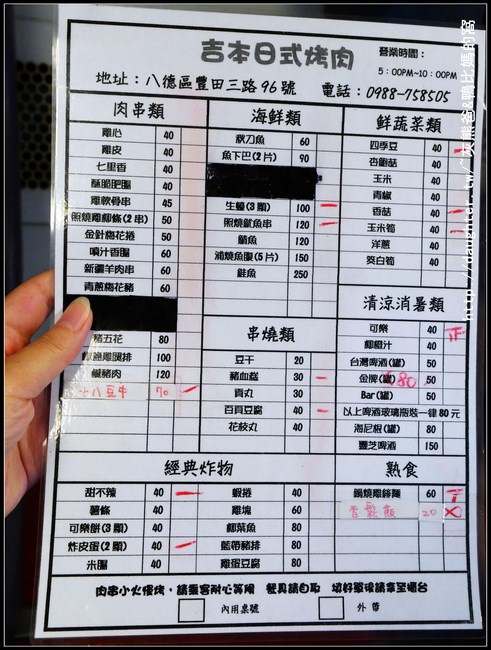 吉本日式烤肉
營業時間：
5：00PM~10：00PM
地址：八德區豐田三路96號　電話：0988-758505
肉串類
雞心 40
雞皮 40
七里香 40
酥脆肥腸 40
雞軟骨串 45
照燒雞柳條(2串) 50
金針梅花捲 50
噴汁香腸 60
新疆羊肉串 60
青蔥梅花豬
豬五花 80
雞腿排 100
鹹豬肉 120
骰牛 70
海鮮類
秋刀魚 60
魚下巴(2片) 90
生蠔(3顆) 100
照燒魷魚串 120
鯖魚 120
浦燒魚腸(5片) 150
鮭魚 250
串燒類
豆干 20
豬血糕 30
貢丸 30
百頁豆腐 40
花枝丸 40
鮮蔬菜類
四季豆 40
杏鮑菇 40
玉米 40
青椒 40
香菇 40
玉米筍 40
洋蔥 40
茭白筍 40
清涼消暑類
可樂 40 正
柳橙汁 40
台灣啤酒(罐) 50
金牌(罐) 80 50
Bar(罐) 50
以上啤酒玻璃瓶裝一律80元
海尼根(罐) 80
靈芝啤酒 150
經典炸物
甜不辣 40
薯條 40
可樂餅(3顆) 40
炸皮蛋(2顆) 40
米腸 40
蝦捲 40
雞塊 60
柳葉魚 80
藍帶豬排 80
雞蛋豆腐 80
熟食
鍋燒雞絲麵 60
香鬆飯 20
肉串小火慢烤，請乘客耐心等候　餐具請自取　填好單後請拿至櫃台
內用桌號
外帶